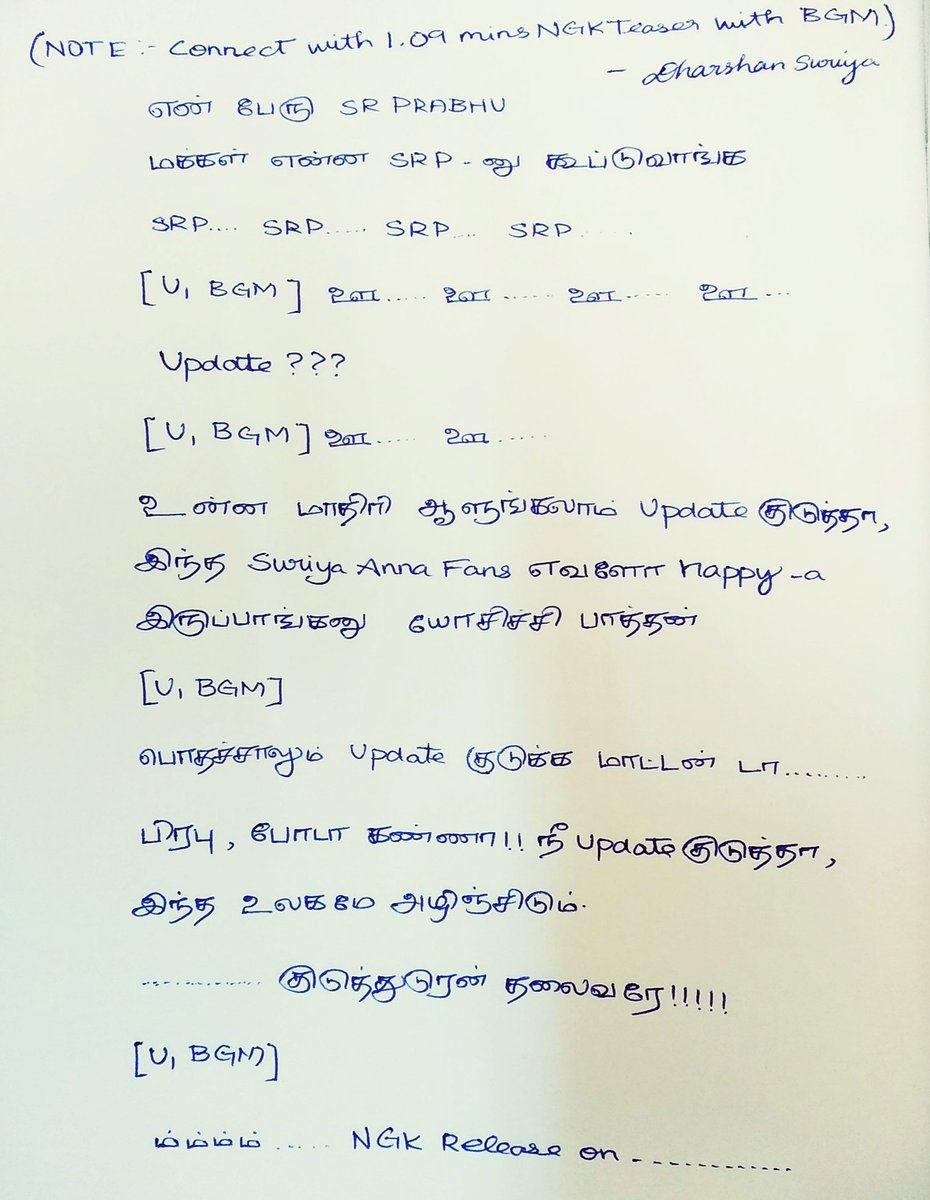 (NOTE :- Connect with 1.09 mins NGK Teaser with BGM)
- Dharshan Suriya
என் பேரு SR PRABHU
மக்கள் என்ன SRP - னு கூப்டுவாங்க
SRP.... SRP..... SRP... SRP.....
[U, BGM] ஊ..... ஊ...... ஊ..... ஊ...
Update ???
[U, BGM] ஊ..... ஊ......
உன்ன மாதிரி ஆளுங்கலாம் Update குடுத்தா,
இந்த Suriya Anna Fans எவளோ happy -a
இருப்பாங்கனு யோசிச்சி பாத்தன்
[U, BGM]
பொதச்சாலும் Update குடுக்க மாட்டன் டா.........
பிரபு, போடா கண்ணா!! நீ update குடுத்தா,
இந்த உலகமே அழிஞ்சிடும்.
............. குடுத்துடுரன் தலைவரே!!!!!
[U, BGM]
ம்ம்ம்ம் ..... NGK Release on ............